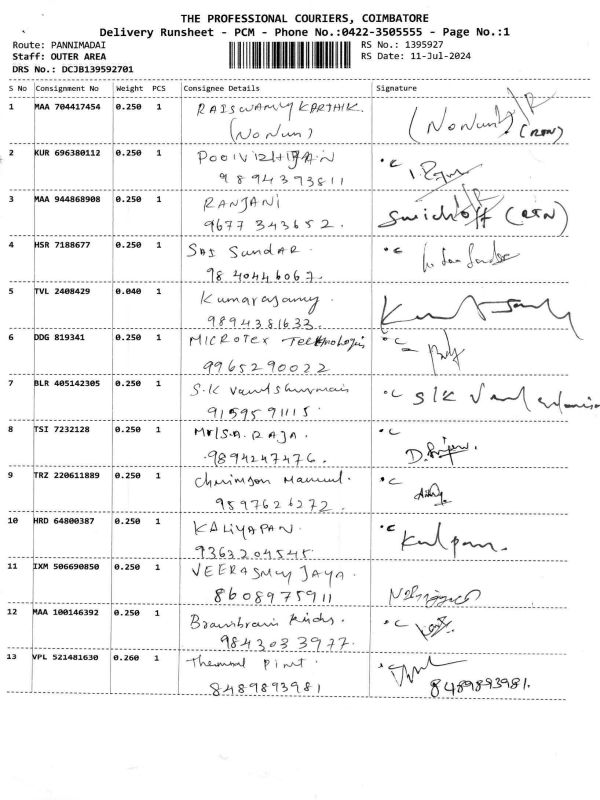 THE PROFESSIONAL COURIERS, COIMBATORE
Delivery Runsheet - PCM - Phone No.:0422-3505555 - Page No.:1
Route: PANNIMADAI
RS No.: 1395927
Staff: OUTER AREA
RS Date: 11-Jul-2024
DRS No.: DCJB139592701
S No Consignment No Weight PCS Consignee Details Signature
1 MAA 704417454 0.250 1 RAISWAMY KARTHIK.
(No Num) (No Num) (RTN)
2 KUR 696380112 0.250 1
9894393811
3 MAA 944868908 0.250 1 RANJANI
9677 343652. Swich off (RTN)
4 HSR 7188677 0.250 1 SAI Sundar.
98 40446067.
5 TVL 2408429 0.040 1 Kumarasamy.
9894381633.
6 DDG 819341 0.250 1 MICROTEX Technologis
9965290022
7 BLR 405142305 0.250 1 S.K
9159591115. SK
8 TSI 7232128 0.250 1 RAJA.
9894247476.
9 TRZ 220611889 0.250 1
9597626272.
10 HRD 64800387 0.250 1 KALIYAPAN.
9363204545
11 IXM 506690850 0.250 1 VEERASMY JAYA.
8608975911
12 MAA 100146392 0.250 1 Kids.
9843033977.
13 VPL 521481630 0.260 1 Thermal Pint.
8489893981 8489893981.